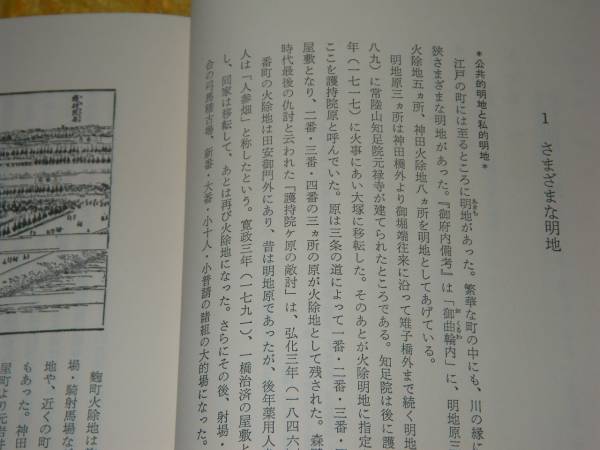 1 さまざまな明地
＊公共的明地と私的明地＊
江戸の町には至るところに明地があった。繁華な町の中にも、川の縁に
狭さまざまな明地があった。『御府内備考』は「御曲輪内」に、明地原三
火除地五ヵ所、神田火除地八ヵ所を明地としてあげている。
明地原三ヵ所は神田橋外より御堀端往来に沿って雉子橋外まで続く明地
八九）に常陸山知足院元禄寺が建てられたところである。知足院は後に護
年（一七一七）に火事にあい大塚に移転した。そのあとが火除明地に指定
ここを護持院原と呼んでいた。原は三条の道によって一番・二番・三番・
屋敷となり、二番・三番・四番の三ヵ所の原が火除地として残された。森
時代最後の仇討と云われた『護持院ヶ原の敵討』は、弘化三年（一八四六
番町の火除地は田安御門外にあり、昔は明地原であったが、後年薬用人
人は「人参畑」と称したという。寛政三年（一七九一）、一橋治済の屋敷と
し、同家は移転して、あとは再び火除地になった。さらにその後、射場・
合の司馬稽古場、新番・大番・小十人・小普請の諸組の大的場になった。
麴町火除地は
場・騎射馬場な
地や、近くの町
もあった。神田
屋町より元岩井